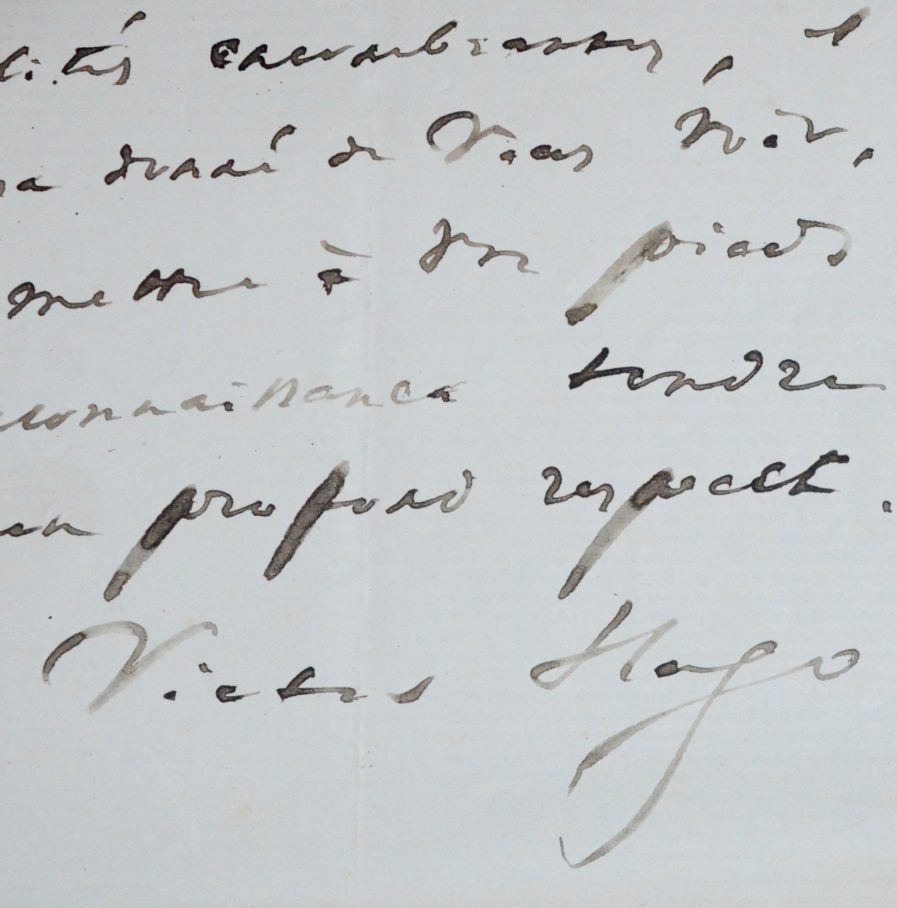 lités encombrantes, il
ra donné de Vous voir,
mettre à vos pieds
econnaissance tendre
mon profond respect.
Victor Hugo